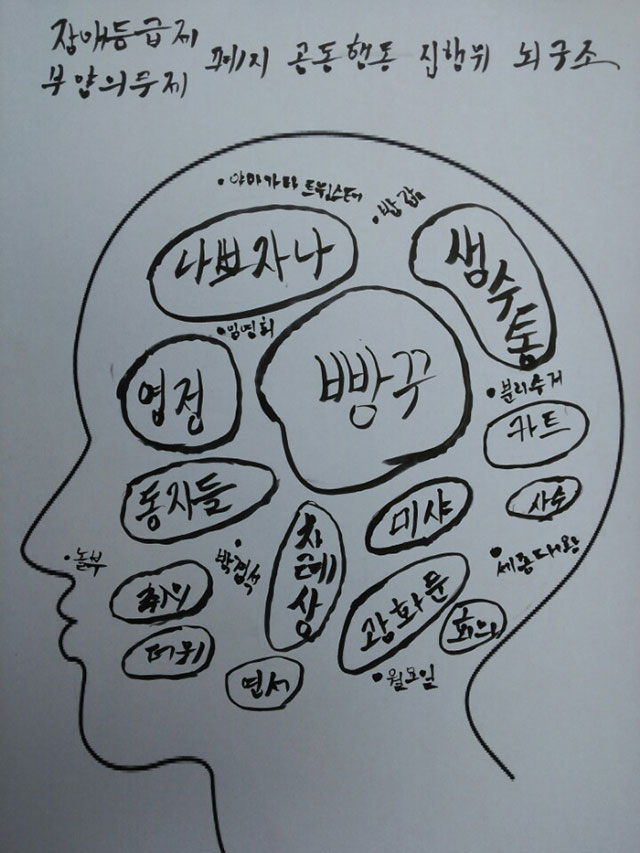 장애등급제
부양의무제 폐지 공동행동 집행위 뇌구조
•야마가타 트윅스터
•밥갑
나쁘자나
생수통
•임영희
영정
빵꾸
•분리수거
카트
동자들
미샤
사수
차례상
•놀부
•박경석
•세종대왕
취의
광화문
회의
더위
엽서
•월요일